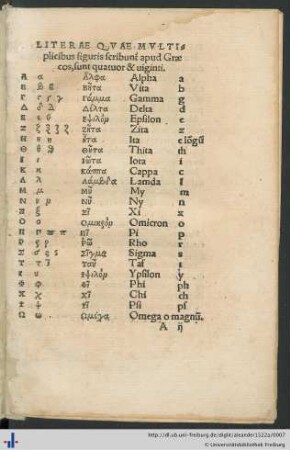 LITERAE QVAE MVLTIplicibus
figuris scribunt apud Græ
cos, sunt quatuor & uiginti.
Α α ἄλφα Alpha a
Β β βῆτα Vita b
Γ γ γάμμα Gamma g
Δ δ Δέλτα Delta d
Ε ε εψιλόμ Epsilon e
Ζ ζ ζῆτα Zita z
Η η ἦτα Ita e lōgū
Θ θ θῆτα Thita th
Ι ι ἰῶτα Iota i
Κ κ κάππα Cappa c
Λ λ λάμβδα Lamda l
Μ μ μῦ My m
Ν ν νῦ Ny n
Ξ ξ ξῖ Xi x
Ο ο ομικρόμ Omicron o
Π π πῖ Pi p
Ρ ρ ῥῶ Rho r
Σ σ σῖγμα Sigma s
Τ τ ταῦ Taf t
Υ υ υψιλόμ Ypsilon y
Φ φ φῖ Phi ph
Χ χ χῖ Chi ch
Ψ ψ ψῖ Psi ps
Ω ω ωμέγα Omega o magnū.
A ij
http://dl.ub.uni-freiburg.de/diglit/aleander1522a/0007
© Universitätsbibliothek Freiburg